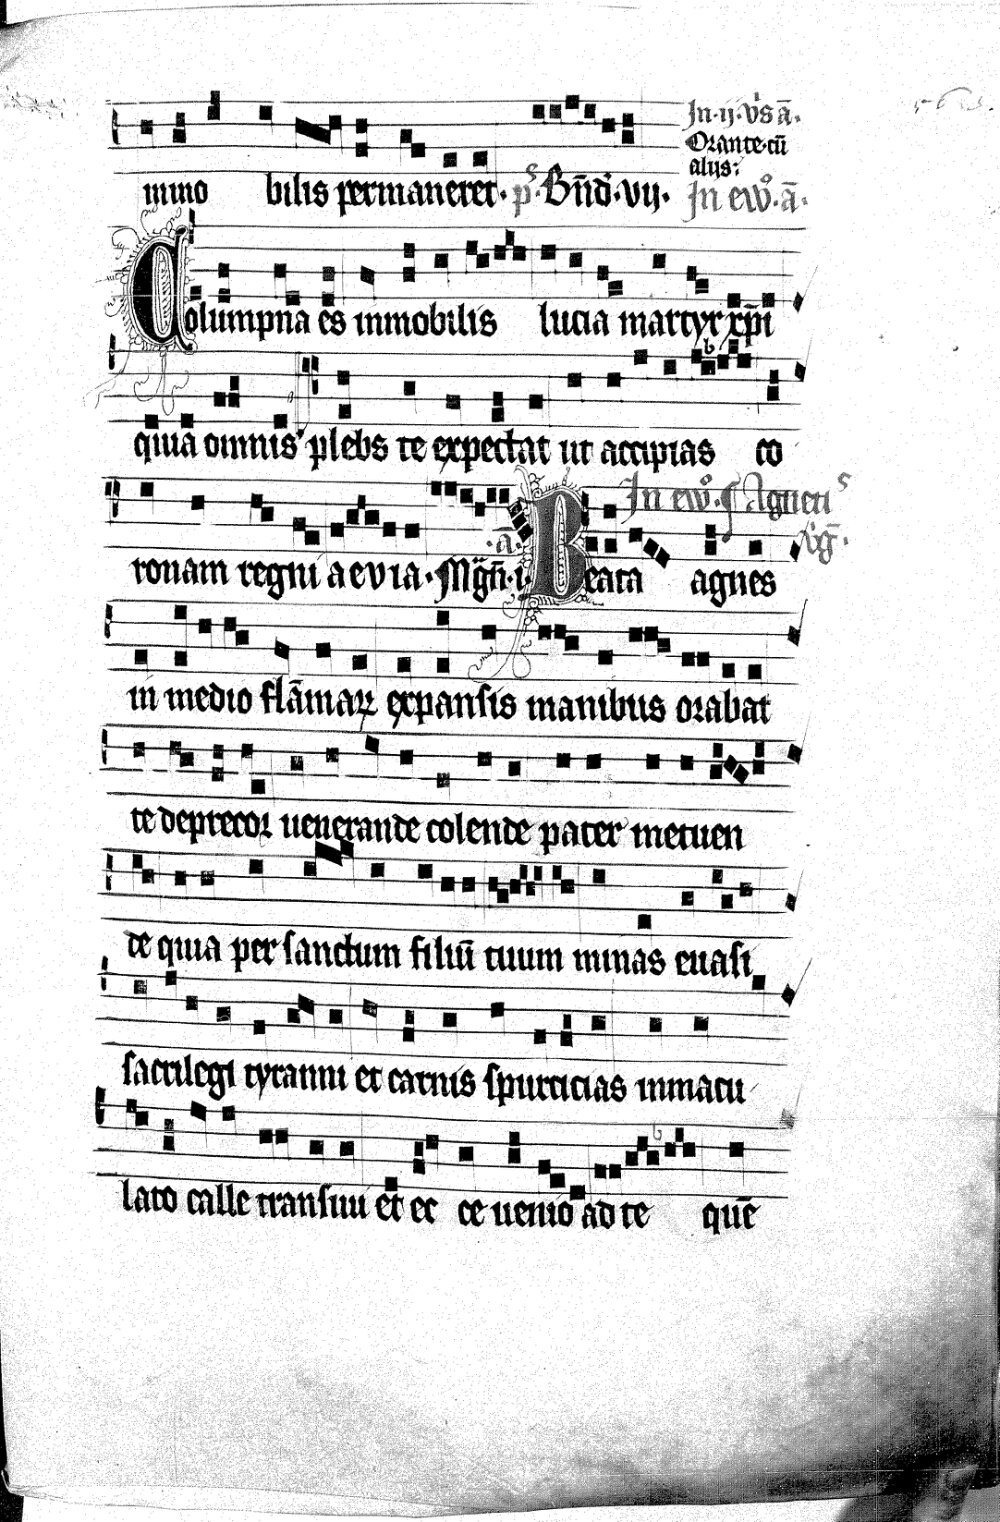 In·ij·v̄s ā·
Orante·cū
alijs:
inmo bilis permaneret· ps· Bn̄d̄·vij· In eẘ·ā·
Columpna es inmobilis lucia martyr xp̄i
quia omnis plebs te expectat ut accipias co
In eẘ· S Agnetis
·ā· v̄ḡ·
ronam regni aevia· Mḡn̄·i· Beata agnes
in medio flāmaꝝ expansis manibus orabat
te deprecor uenerande colende pater metuen
de quia per sanctum filiū tuum minas euasi
sacrilegi tyranni et carnis spurcicias inmacu
lato calle transiui et ec ce uenio ad te quē